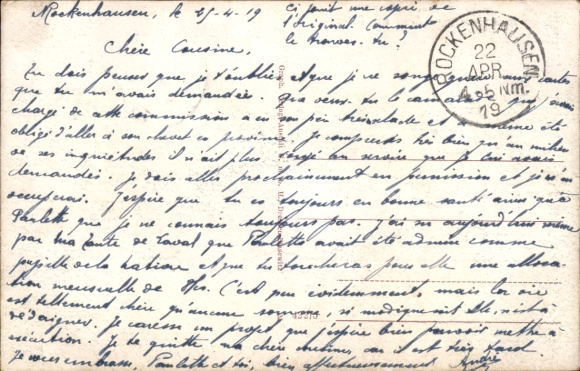 Rockenhausen, le 25-4-19
Ci joint une copie de
l'original. Comment
le trouves-tu?
Chère Cousine,
ROCKENHAUSEN
22
APR
4-5 Nm.
19
Tu dois penser que je t'oublie et que je ne songe aux cartes
que tu m'avais demandées. Que veux-tu le camarade que j'avais
chargé de cette commission a eu son père très malade et a même été
obligé d'aller à son chevet en province. Je comprends très bien qu'au milieu
de ses inquiétudes il n'ait plus songé au service que je lui avais
demandé. Je dois aller prochainement en permission et je m'en
occuperai. J'espère que tu es toujours en bonne santé ainsi que
Paulette que je ne connais toujours pas. J'ai su aujourd'hui même
par ma tante de Laval que Paulette avait été admise comme
pupille de la nation et que tu toucheras pour elle une alloca-
tion mensuelle de C'est peu évidemment, mais la vie
est tellement chère qu'aucune somme, si modique soit-elle, n'est à
dédaigner. Je caresse un projet que j'espère bien pouvoir mettre à
exécution. Je te quitte ma chère cousine, car il est très tard.
Je vous embrasse, Paulette et toi, bien affectueusement André